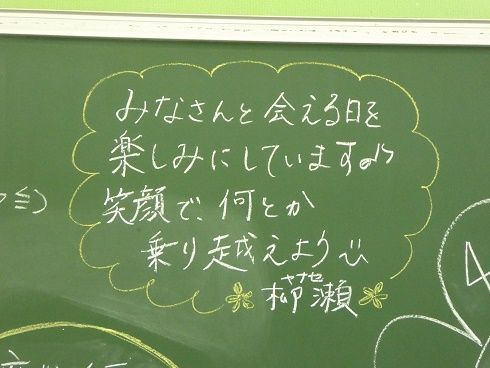 みなさんと会える日を
楽しみにしています♪
笑顔で、何とか
乗り越えよう
ヤナセ
柳瀬